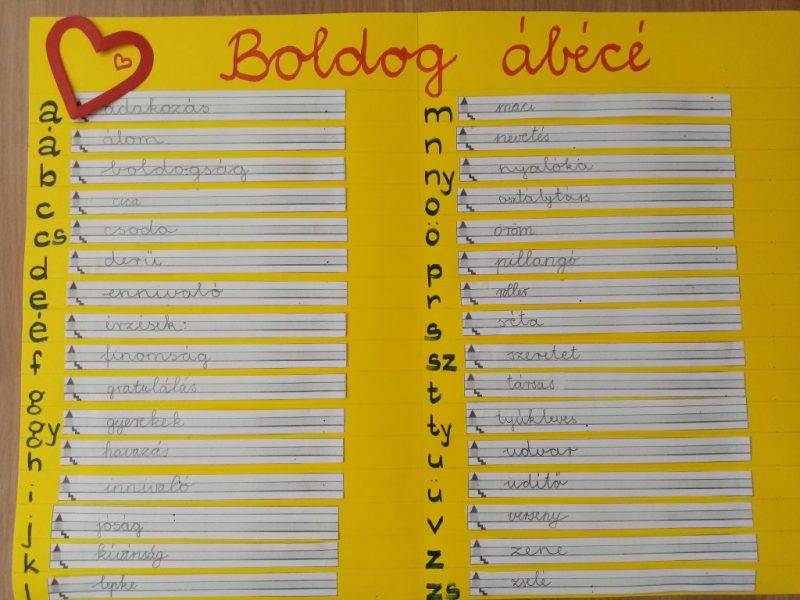 Boldog ábécé
a adakozás
á álom
b boldogság
c cica
cs csoda
d derű
e ennivaló
é érzések:
f finomság
g gratulálás
gy gyerekek
h havazás
i innivaló
j jóság
k kívánság
l lepke
m maci
n nevetés
ny nyalóka
o osztálytárs
ö öröm
p pillangó
r roller
s séta
sz szeretet
t társas
ty tyúkleves
u udvar
ü üdítő
v verseny
z zene
zs zselé